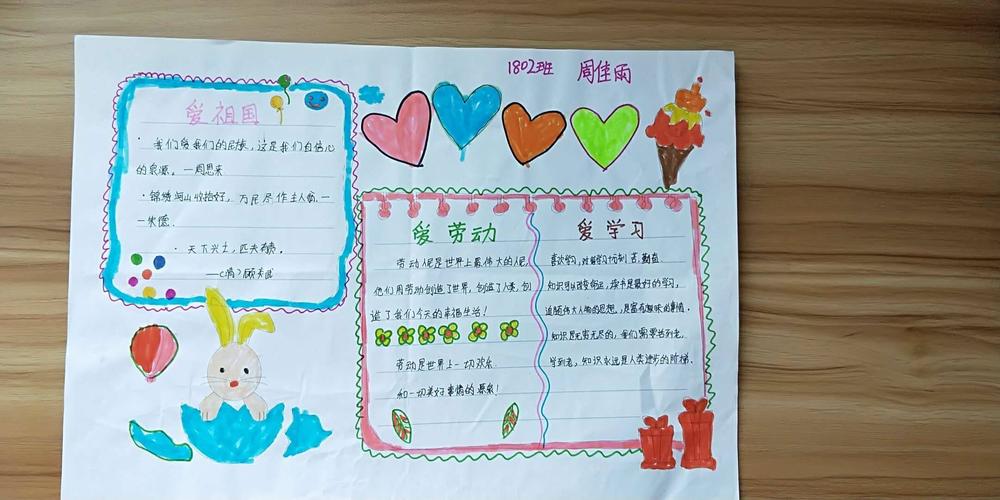 1802班 周佳雨
爱祖国
· 我们爱我们的民族，这是我们自信心
的泉源。一周恩来
· 锦绣河山收拾好，万民尽作主人翁.一
一朱德.
· 天下兴亡，匹夫有责。
——(清)顾炎武
爱劳动
劳动人民是世界上最伟大的人民,
他们用劳动创造了世界，创造了人类，创
造了我们今天的幸福生活！
劳动是世界上一切欢乐
和一切美好事情的源泉！
爱学习
喜欢学习，对学习
知识可以改变命运，读书是最好的学习，
追随伟大人物的思想，是富有趣味的事情.
知识是无穷无尽的，我们需要活到老，
学到老，知识永远是人类进步的阶梯.